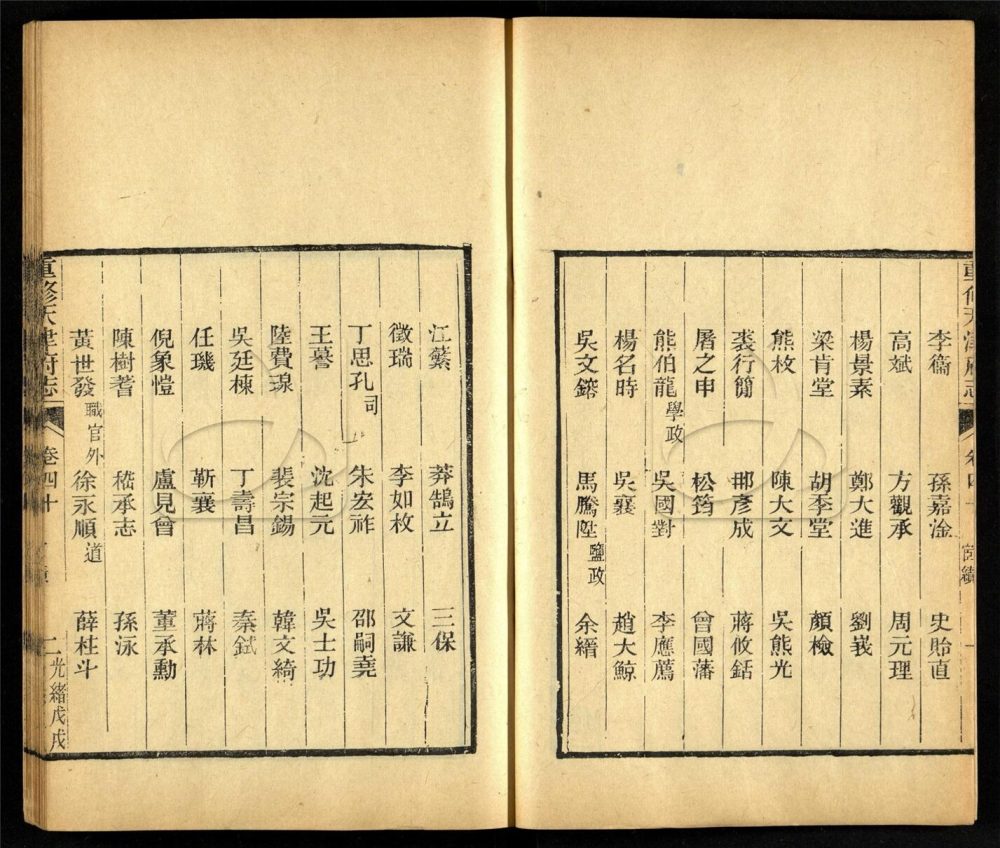 李衞 孫嘉淦 史貽直
高斌 方觀承 周元理
楊景素 鄭大進 劉峩
梁肯堂 胡季堂 顏檢
熊枚 陳大文 吳熊光
裘行簡 那彥成 蔣攸銛
屠之申 松筠 曾國藩
熊伯龍學政 吳國對 李應薦
楊名時 吳襄 趙大鯨
吳文鎔 馬騰陞鹽政 余縉
江蘩 莽鵠立 三保
徵瑞 李如枚 文謙
丁思孔司 朱宏祚 邵嗣堯
王謩 沈起元 吳士功
陸費瑔 裴宗錫 韓文綺
吳廷棟 丁壽昌 秦鉽
任璣 靳襄 蔣林
倪象愷 盧見曾 董承勳
陳樹蓍 嵇承志 孫泳
黃世發職官外 徐永順道 薛柱斗
重修天津府志 卷四十 二 光緒戊戌